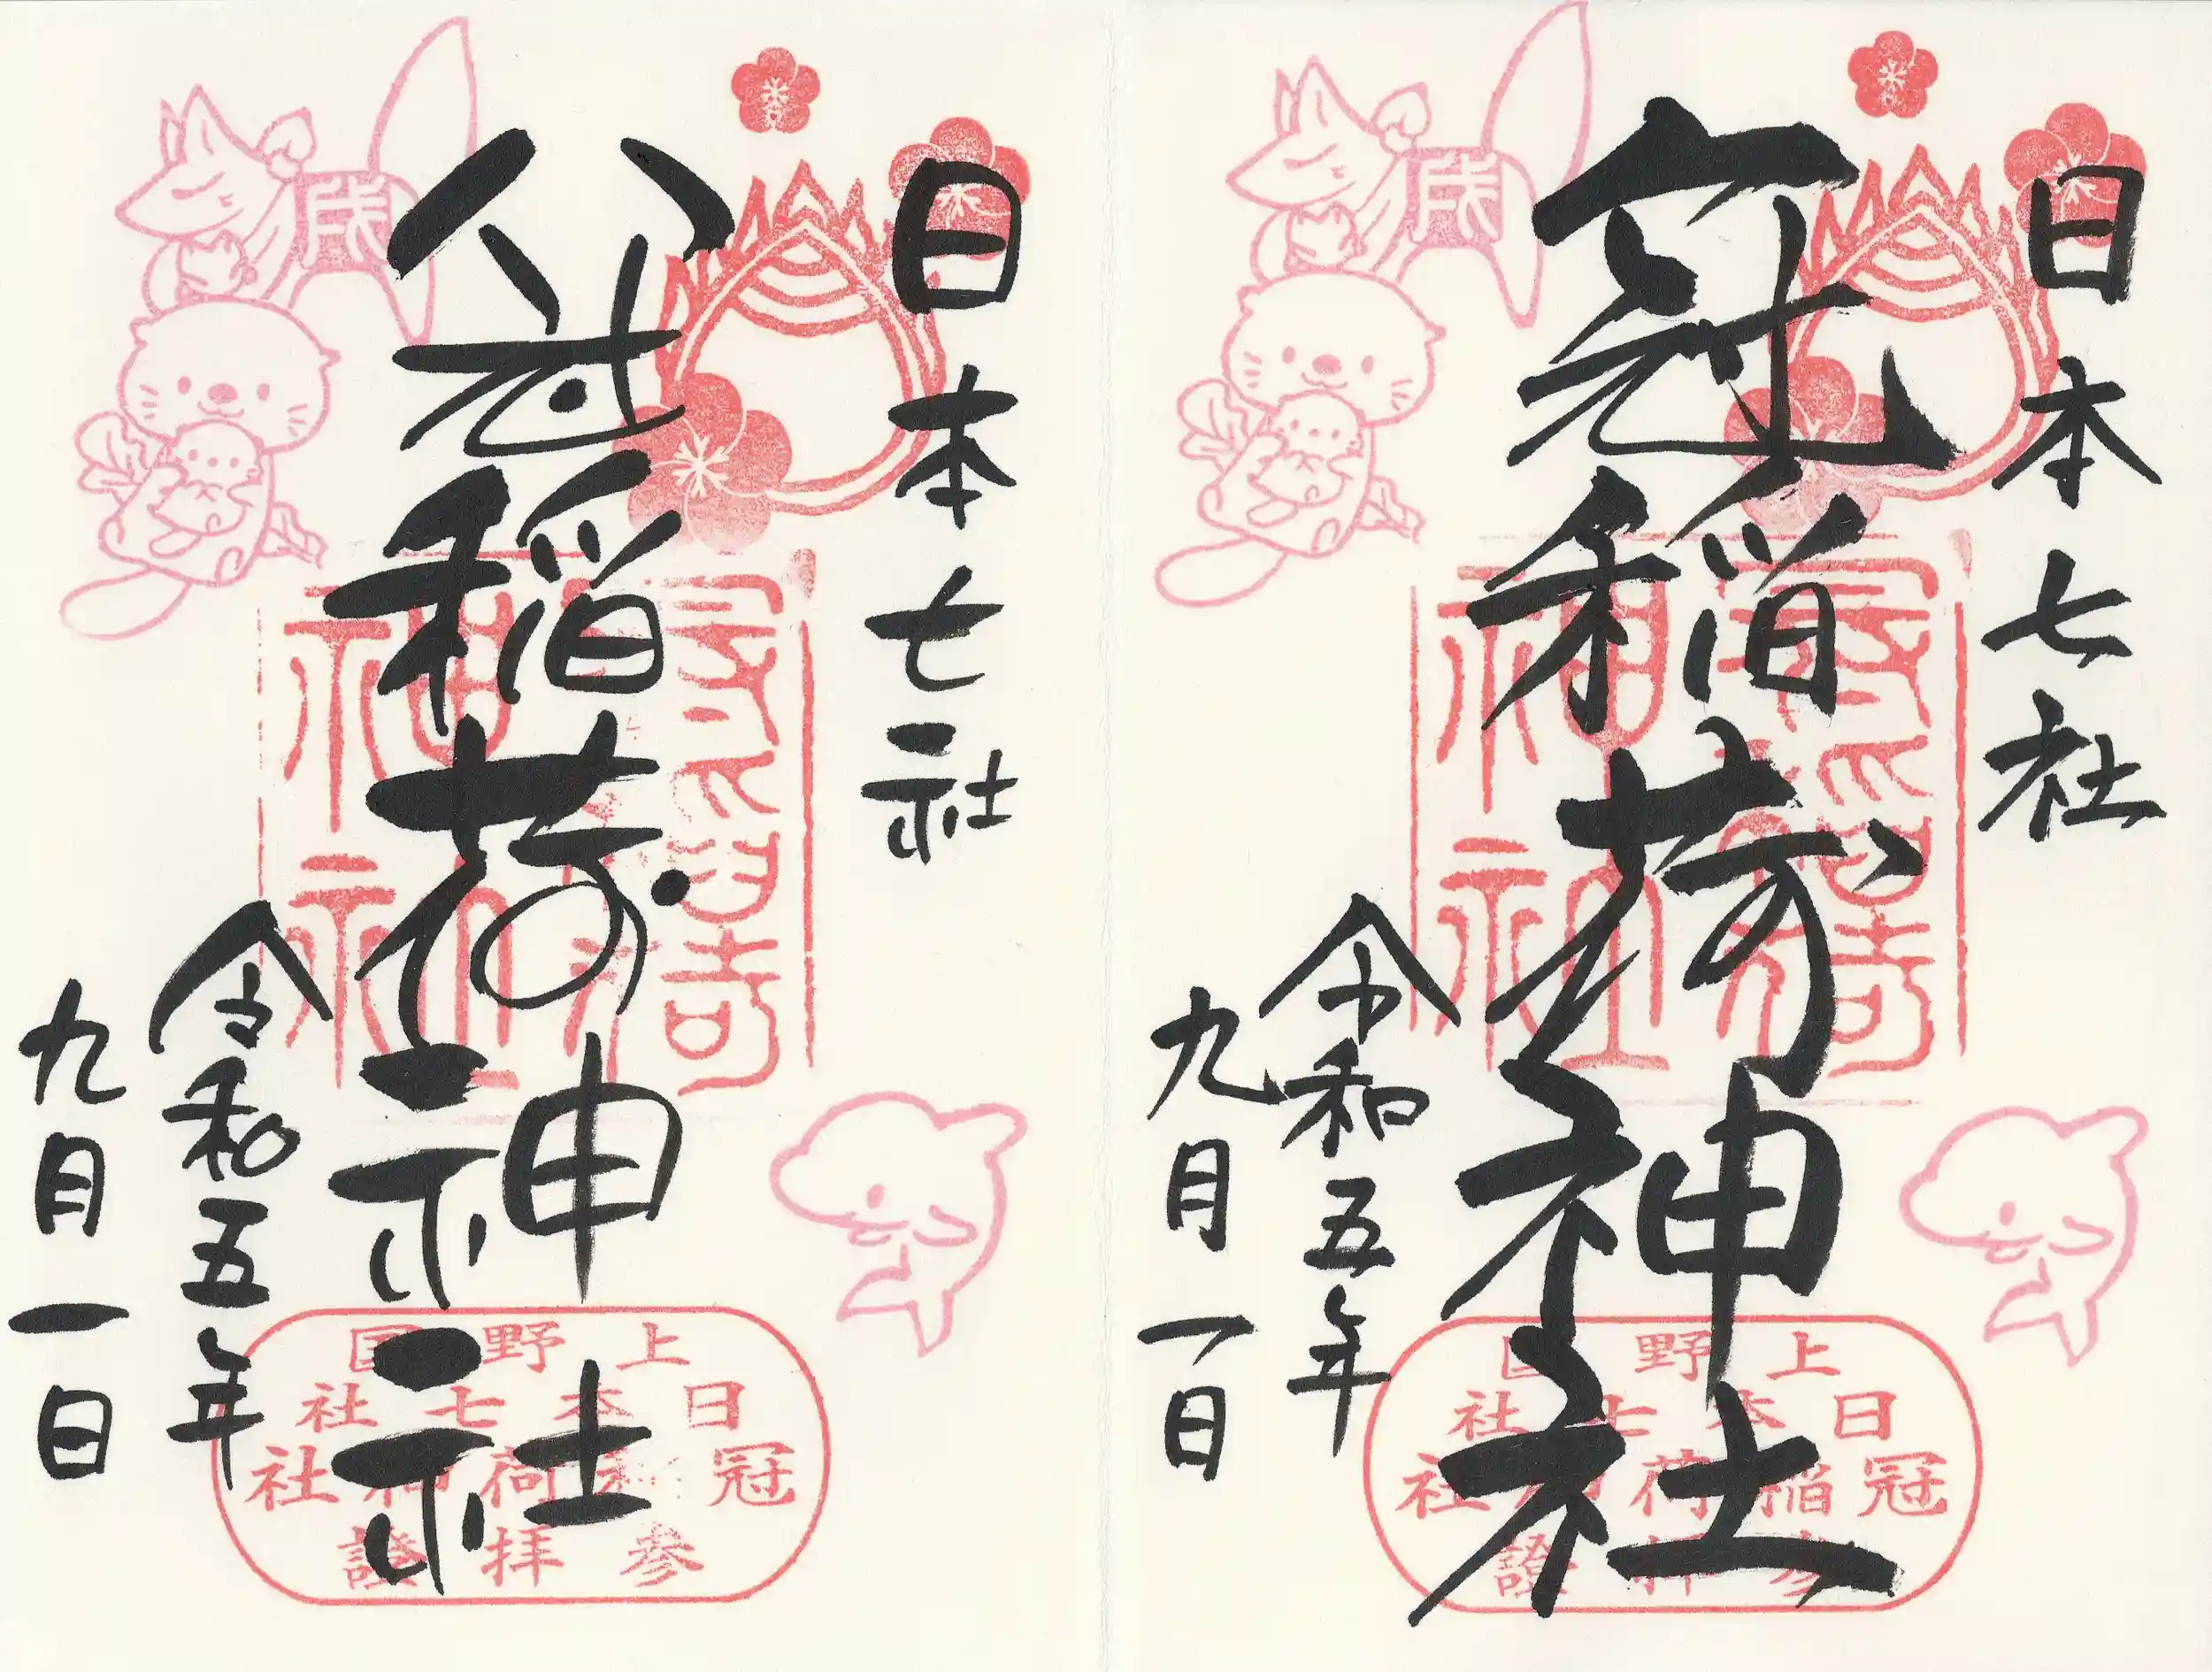 日本七社
冠稲荷神社
令和五年
九月一日
冠稲荷
神社
上野国
日本七社
冠稲荷神社
参拝證
成
日本七社
冠稲荷神社
令和五年
九月一日
冠稲荷
神社
上野国
日本七社
冠稲荷神社
参拝證
成